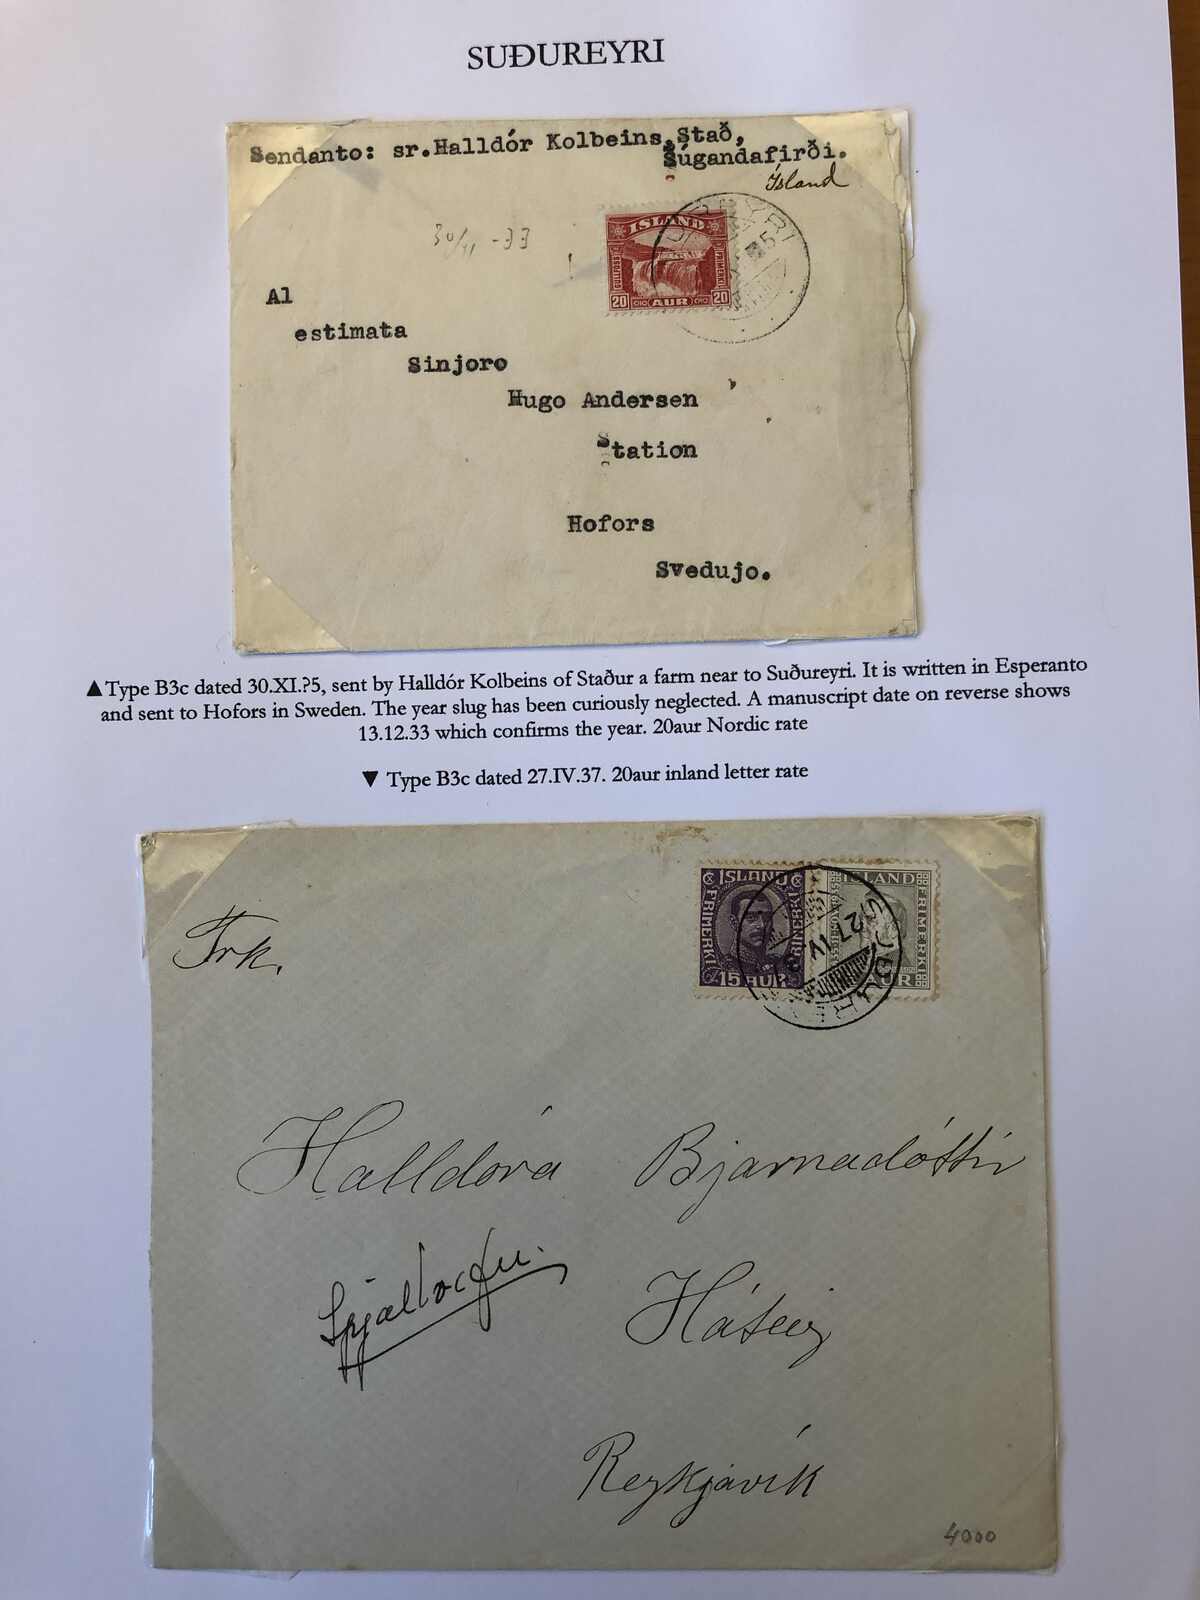 SUÐUREYRI
Sendanto: sr.Halldór Kolbeins, Stað,
Súgandafirði.
Ísland
30/11 -33
ÍSLAND
20 AUR 20
5
Al
estimata
Sinjoro
Hugo Andersen
Station
Hofors
Svedujo.
▲Type B3c dated 30.XI.?5, sent by Halldór Kolbeins of Staður a farm near to Suðureyri. It is written in Esperanto
and sent to Hofors in Sweden. The year slug has been curiously neglected. A manuscript date on reverse shows
13.12.33 which confirms the year. 20aur Nordic rate
▼ Type B3c dated 27.IV.37. 20aur inland letter rate
ÍSLAND
FRIMERKI
FRIMERKI
15 AUR
ÍSLAND
FRIMERKI
AUR
27 IV
Frk.
Halldóra Bjarnadóttir
Háteig
Reykjavík
4000